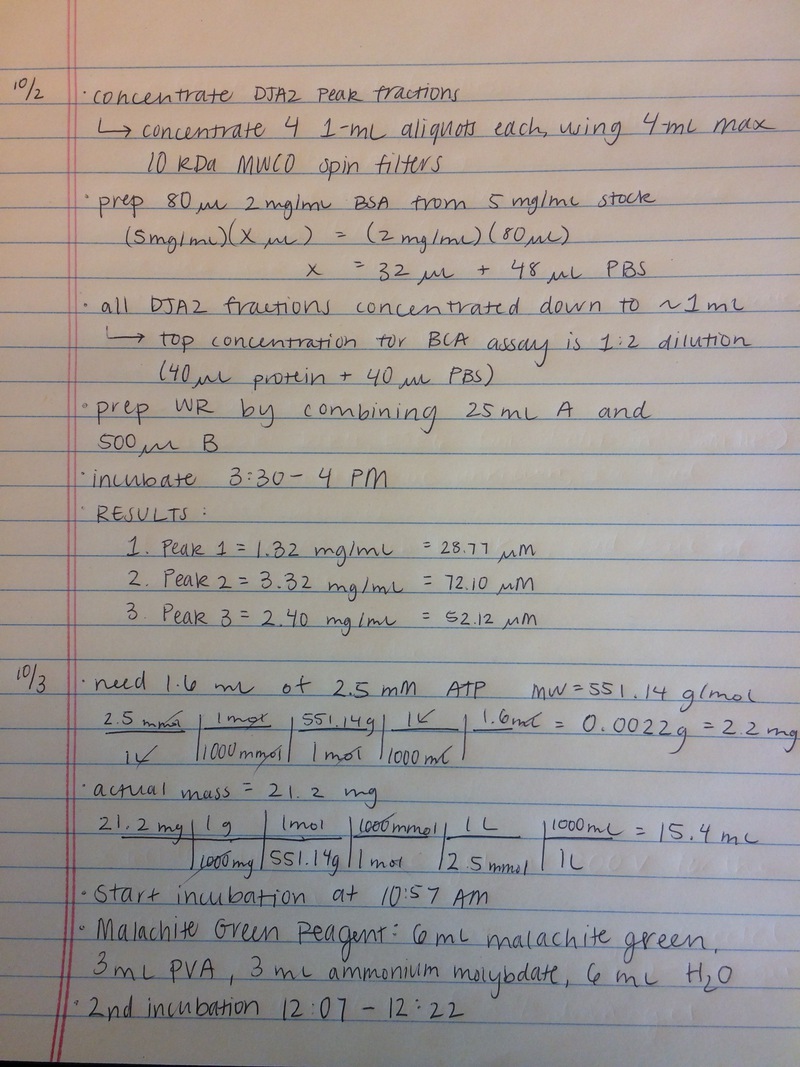 10/2 · concentrate DJA2 peak fractions
↳ concentrate 4 1-mL aliquots each, using 4-mL max
10 kDa MWCO spin filters
· prep 80 μL 2 mg/mL BSA from 5 mg/mL stock
(5mg/mL)(x μL) = (2 mg/mL)(80μL)
x = 32 μL + 48 μL PBS
· all DJA2 fractions concentrated down to ~1 mL
↳ top concentration for BCA assay is 1:2 dilution
(40 μL protein + 40 μL PBS)
· prep WR by combining 25 mL A and
500 μL B
· incubate 3:30 - 4 PM
· RESULTS:
1. Peak 1 = 1.32 mg/mL = 28.77 μM
2. Peak 2 = 3.32 mg/mL = 72.10 μM
3. Peak 3 = 2.40 mg/mL = 52.12 μM
10/3 · need 1.6 mL of 2.5 mM ATP MW = 551.14 g/mol
2.5 mmol | 1 mol | 551.14g | 1 L | 1.6 mL = 0.0022g = 2.2 mg
1 L | 1000 mmol | 1 mol | 1000 mL |
· actual mass = 21.2 mg
21.2 mg | 1 g | 1 mol | 1000 mmol | 1 L | 1000 mL = 15.4 mL
| 1000 mg | 551.14g | 1 mol | 2.5 mmol | 1 L
· start incubation at 10:57 AM
· Malachite Green Reagent: 6 mL malachite green,
3 mL PVA, 3 mL ammonium molybdate, 6 mL H₂O
· 2nd incubation 12:07 - 12:22